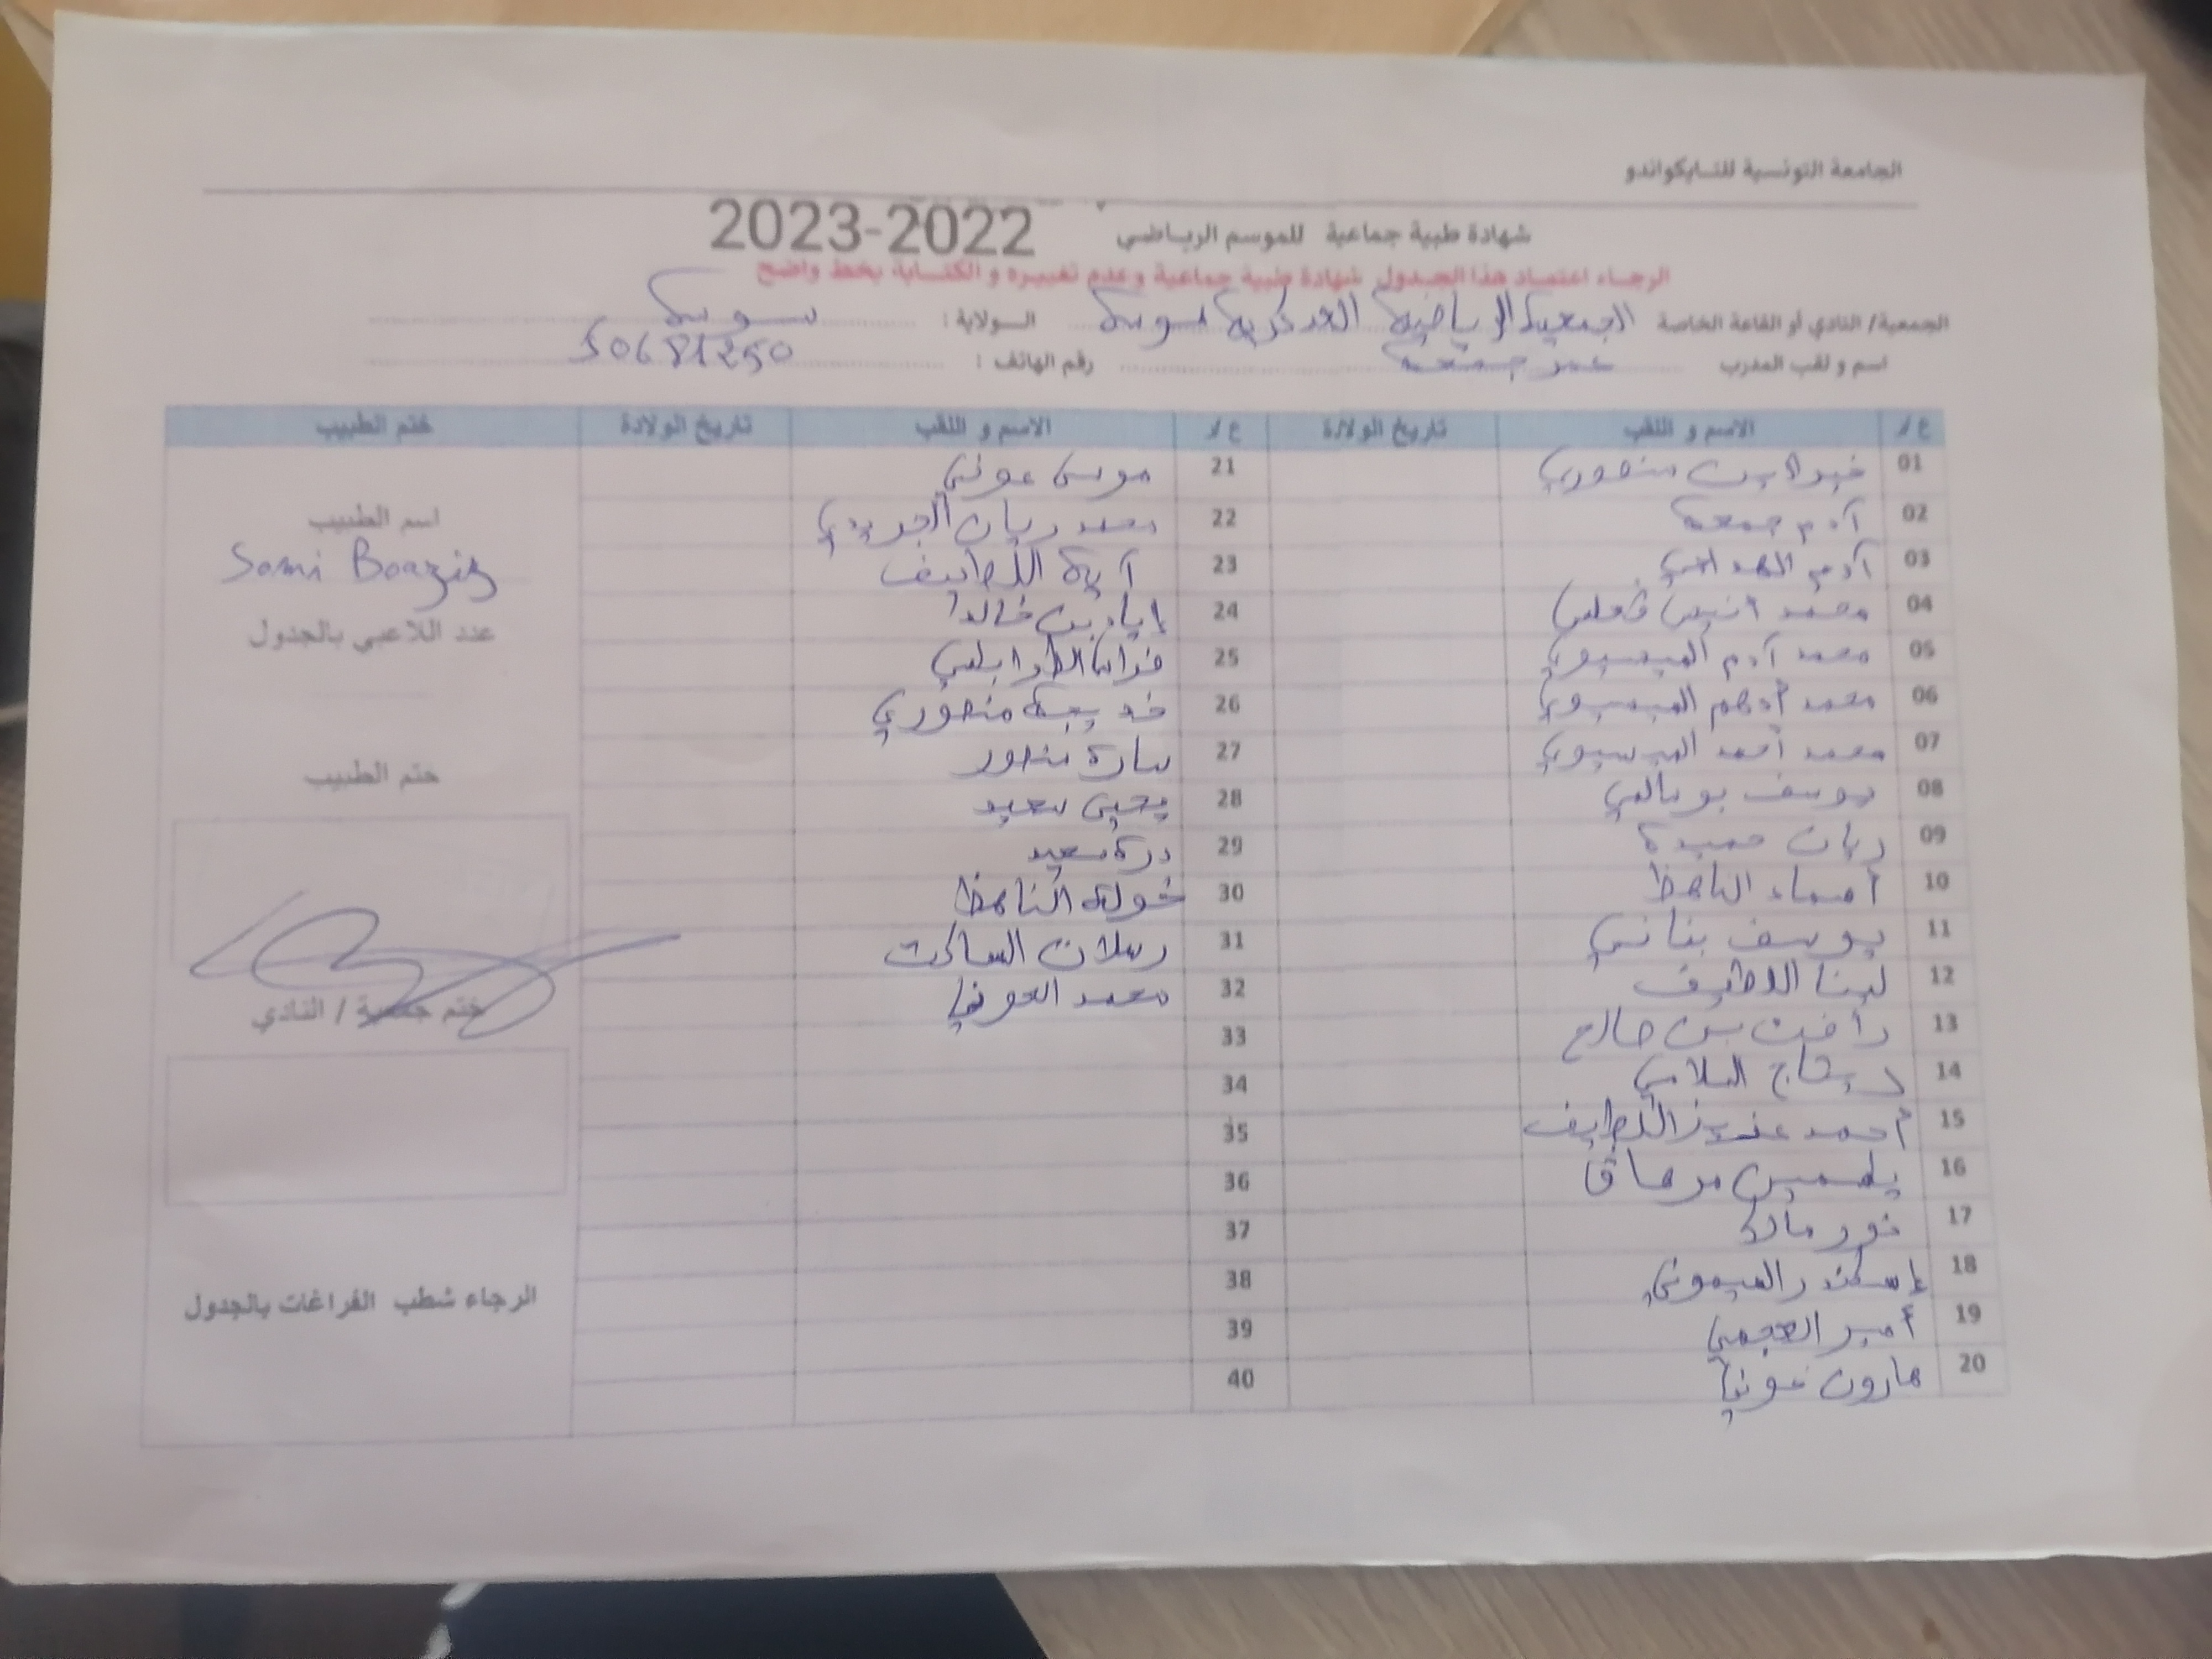 الجامعة التونسية للتايكواندو
شهادة طبية جماعية للموسم الرياضي 2022-2023
الرجاء اعتماد هذا الجدول شهادة طبية جماعية وعدم تغييره و الكتابة بخط واضح
الجمعية/ النادي أو القاعة الخاصة الجمعية الرياضية العسكرية بسوسة الولاية : سوسة
اسم و لقب المدرب عمر جمعة رقم الهاتف : 50681250
ع/د الاسم و اللقب تاريخ الولادة ع/د الاسم و اللقب تاريخ الولادة ختم الطبيب
01 خير الدين منصوري
02 آدم جمعة
03 آدم
04 محمد أنيس
05 محمد آدم العيسوي
06 محمد أدهم العيسوي
07 محمد أحمد العيسوي
08 يوسف
09 ريان حميدة
10 أسماء الناهظ
11 يوسف بناني
12 لينا اللطيف
13 رأفت بن صالح
14 السلامي
15 أحمد عزيز اللطيف
16 ياسمين
17 نور مالك
18 إسكندر الميموني
19 أمير العجمي
20 هارون عوني
21 موسى عوني
22 محمد ريان الجريدي
23 آية اللطيف
24 إياد بن خالد
25 فراس الطرابلسي
26 خديجة منصوري
27 سارة منصور
28 يحيى سعيد
29 درة سعيد
30 خولة الناهظ
31 رسلان الساكت
32 محمد العوني
33
34
35
36
37
38
39
40
اسم الطبيب
Sami Boaziz
عدد اللاعبي بالجدول
ختم الطبيب
ختم جمعية / النادي
الرجاء شطب الفراغات بالجدول